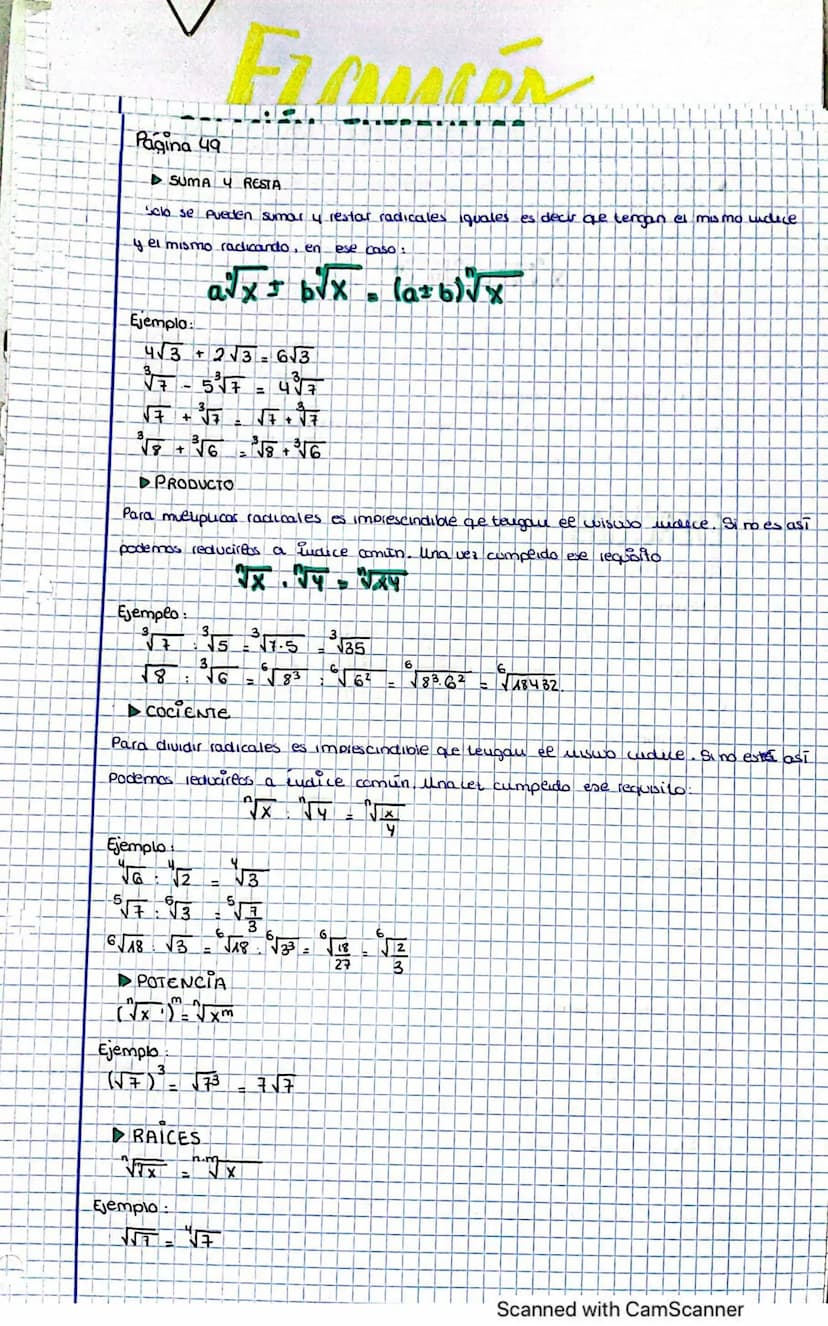 Página 49
▷ SUMA Y RESTA
Solo se pueden sumar y restar radicales iguales es decir qe tengan el mismo indice
y el mismo radicando, en ese caso:
aⁿ√x ± bⁿ√x = (a±b)ⁿ√x
Ejemplo:
4√3 + 2√3 = 6√3
³√7 - 5³√7 = 4³√7
√7 + ³√7 = √7 + ³√7
³√8 + ³√6 = ³√8 + ³√6
▷ PRODUCTO
Para multiplicar radicales es imprescindible qe tengan el mismo indice. Si no es así
podemos reducirlos a índice común. Una vez cumplido ese requisito
ⁿ√x . ⁿ√y = ⁿ√xy
Ejemplo:
³√7 : ³√5 = ³√7·5 = ³√35
√8 : ³√6 = ⁶√8³ : ⁶√6² = ⁶√8³·6² = ⁶√18432.
▷ COCIENTE
Para dividir radicales es imprescindible qe tengan el mismo indice. Si no está así
podemos reducirlos a índice común. Una vez cumplido ese requisito:
ⁿ√x : ⁿ√y = ⁿ√x/y
Ejemplo:
⁴√6 : ⁴√2 = ⁴√3
⁵√7 : ⁵√3 = ⁵√7/3
⁶√18 : √3 = ⁶√18 : ⁶√3³ = ⁶√18/27 = ⁶√2/3
▷ POTENCIA
(ⁿ√x )ᵐ = ⁿ√xᵐ
Ejemplo:
(√7)³ = √7³ = 7√7
▷ RAÍCES
ⁿ√√x = ⁿ·ᵐ√x
Ejemplo:
√√7 = ⁴√7
Scanned with CamScanner